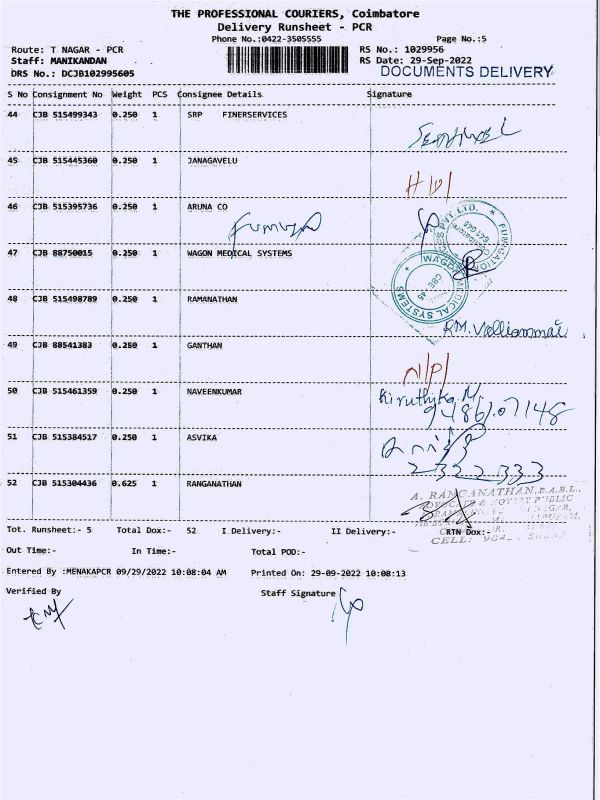 THE PROFESSIONAL COURIERS, Coimbatore
Delivery Runsheet - PCR
Phone No.:0422-3505555 Page No.:5
Route: T NAGAR - PCR RS No.: 1029956
Staff: MANIKANDAN RS Date: 29-Sep-2022
DRS No.: DCJB102995605 DOCUMENTS DELIVERY
S No Consignment No Weight PCS Consignee Details Signature
44 CJB 515499343 0.250 1 SRP FINERSERVICES
45 CJB 515445360 0.250 1 JANAGAVELU
46 CJB 515395736 0.250 1 ARUNA CO
47 CJB 88750015 0.250 1 WAGON MEDICAL SYSTEMS
WAGON MEDICAL SYSTEMS
CBE-45
48 CJB 515498789 0.250 1 RAMANATHAN
RM. Valliammai
49 CJB 88541383 0.250 1 GANTHAN
50 CJB 515461359 0.250 1 NAVEENKUMAR
Kiruthika.M,
9486107148
51 CJB 515384517 0.250 1 ASVIKA
2322333
52 CJB 515304436 0.625 1 RANGANATHAN
A. RANGANATHAN, B.A.B.L.,
ADVOCATE & NOTARY PUBLIC
Tot. Runsheet:- 5 Total Dox:- 52 I Delivery:- II Delivery:- RTN Dox:-
CELL:
Out Time:- In Time:- Total POD:-
Entered By :MENAKAPCR 09/29/2022 10:08:04 AM Printed On: 29-09-2022 10:08:13
Verified By Staff Signature